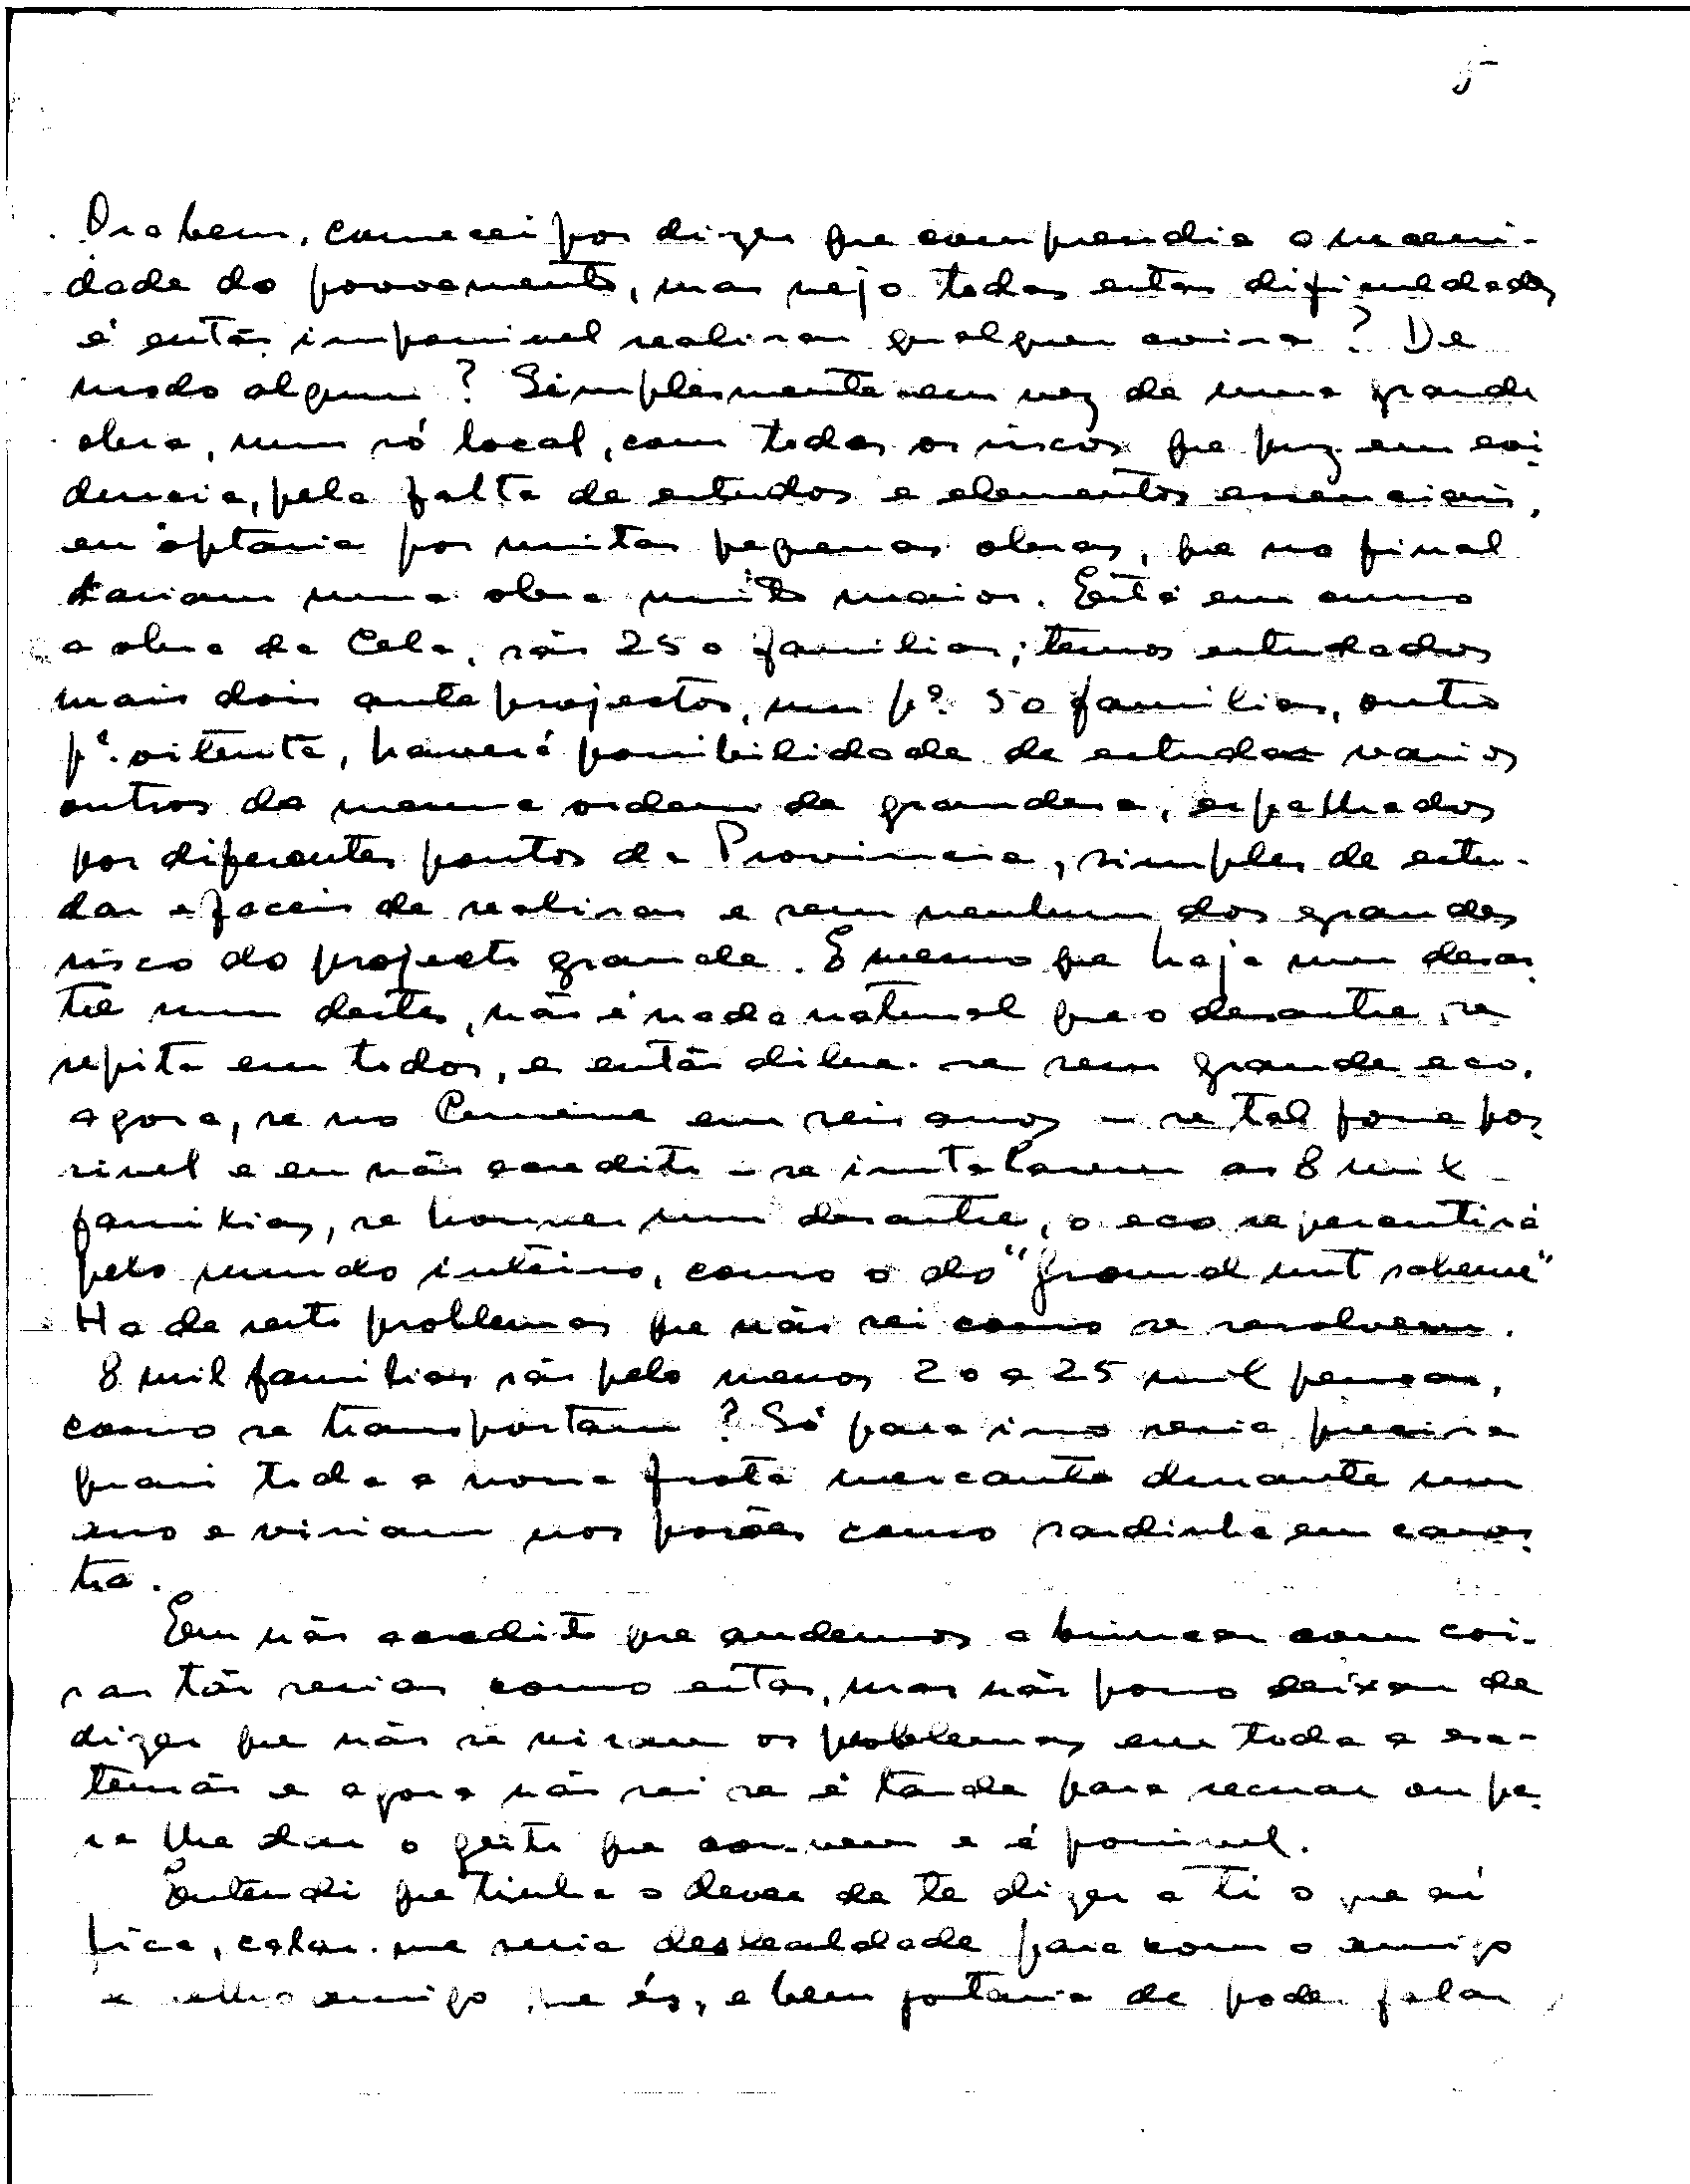 5
Ora bem, comecei por dizer que comprendia a necessi-
dade do povoamento, mas vejo todas estas dificuldades
é então impossivel realisar qualquer coisa? De
modo algum? Simplesmente em vez de uma grande
obra, num só local, com todos os riscos que puz em evi-
dencia, pela falta de estudos e elementos essenciais,
eu optaria por muitas pequenas obras, que no final
dariam uma obra muito maior. Está em curso
a obra da Cela, são 250 familias; temos estudados
mais dois anteprojectos, um pª. 50 familias, outro
pª. oitenta, haverá possibilidade de estudar varios
outros da mesma ordem de grandesa, espalhados
por diferentes pontos da Provincia, simples de estu-
dar e faceis de realisar e sem nenhum dos grandes
risco do projecto grande. E mesmo que haja um desas-
tre num destes, não é nada natural que o desastre se
repita em todos, e então dilue-se sem grande eco.
Agora, se no Cunene em seis anos - se tal fosse pos-
sivel e eu não acredito - se instalarem as 8 mil
familias, se houver um desastre, o eco repercutirá
pelo mundo inteiro, como o do "ground nut scheme"
Ha de resto problemas que não sei como se resolvem.
8 mil familias são pelo menos 20 a 25 mil pessoas,
como se transportam? Só para isso seria precisa
quasi toda a nossa frota mercante durante um
ano e viriam nos porões como sardinha em canas-
tra.
Eu não acredito que andemos a brincar com coi-
sas tão serias como estas, mas não posso deixar de
dizer que não se viram os problemas em toda a ex-
tensão e agora não sei se é tarde para recuar ou pa-
ra lhe dar o geito que convem e é possivel.
Entendi que tinha o dever de te dizer a ti o que aí
fica, calar-me seria deslealdade para com o amigo
e velho amigo que és, e bem gostaria de poder falar